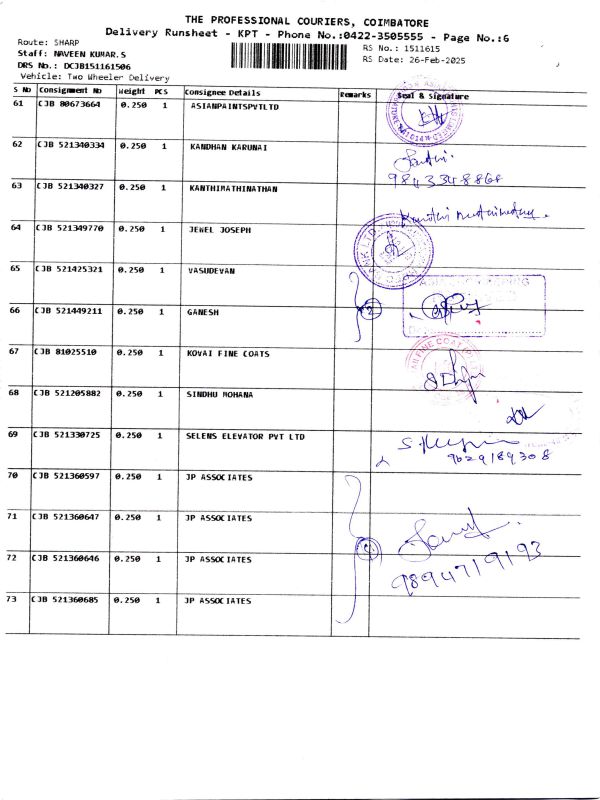 THE PROFESSIONAL COURIERS, COIMBATORE
Delivery Runsheet - KPT - Phone No.:0422-3505555 - Page No.:6
Route: SHARP
RS No.: 1511615
Staff: NAVEEN KUMAR.S
RS Date: 26-Feb-2025
DRS No.: DCJB151161506
Vehicle: Two Wheeler Delivery
S No Consignment No Weight PCS Consignee Details Remarks Seal & Signature
61 CJB 80673664 0.250 1 ASIANPAINTSPVTLTD
62 CJB 521340334 0.250 1 KANDHAN KARUNAI
9843348868
63 CJB 521340327 0.250 1 KANTHIMATHINATHAN
64 CJB 521349770 0.250 1 JEWEL JOSEPH
65 CJB 521425321 0.250 1 VASUDEVAN
66 CJB 521449211 0.250 1 GANESH
2
67 CJB 81025510 0.250 1 KOVAI FINE COATS
68 CJB 521205882 0.250 1 SINDHU MOHANA
69 CJB 521330725 0.250 1 SELENS ELEVATOR PVT LTD
9629189308
70 CJB 521360597 0.250 1 JP ASSOCIATES
71 CJB 521360647 0.250 1 JP ASSOCIATES
72 CJB 521360646 0.250 1 JP ASSOCIATES
9894719193
73 CJB 521360685 0.250 1 JP ASSOCIATES